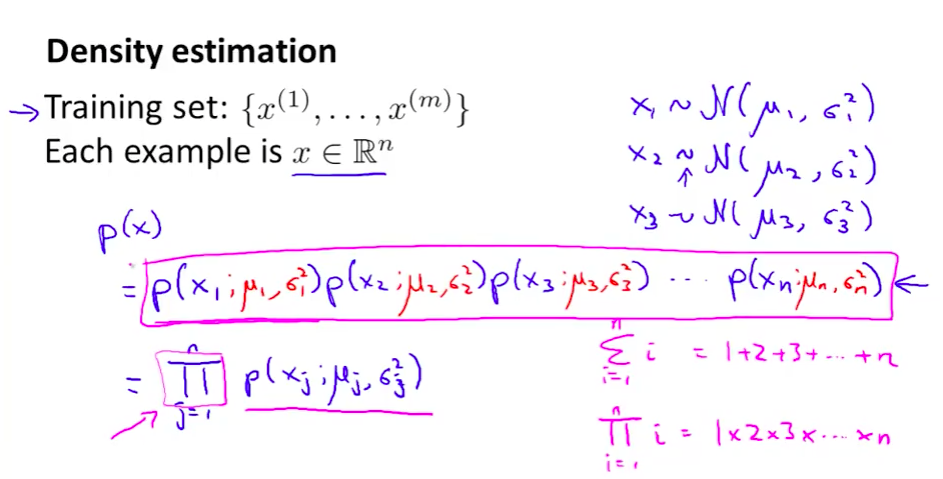 Density estimation
→ Training set: {x^(1), . . . , x^(m)}
Each example is x ∈ ℝ^n
x₁ ~ N(μ₁, σ₁²)
x₂ ~ N(μ₂, σ₂²)
↑
x₃ ~ N(μ₃, σ₃²)
p(x)
= p(x₁; μ₁, σ₁²) p(x₂; μ₂, σ₂²) p(x₃; μ₃, σ₃²) ··· p(xₙ; μₙ, σₙ²) ←
= ∏_{j=1}^{n} p(x_j; μ_j, σ_j²)
∑_{i=1}^{n} i = 1+2+3+···+n
∏_{i=1}^{n} i = 1×2×3×···×n